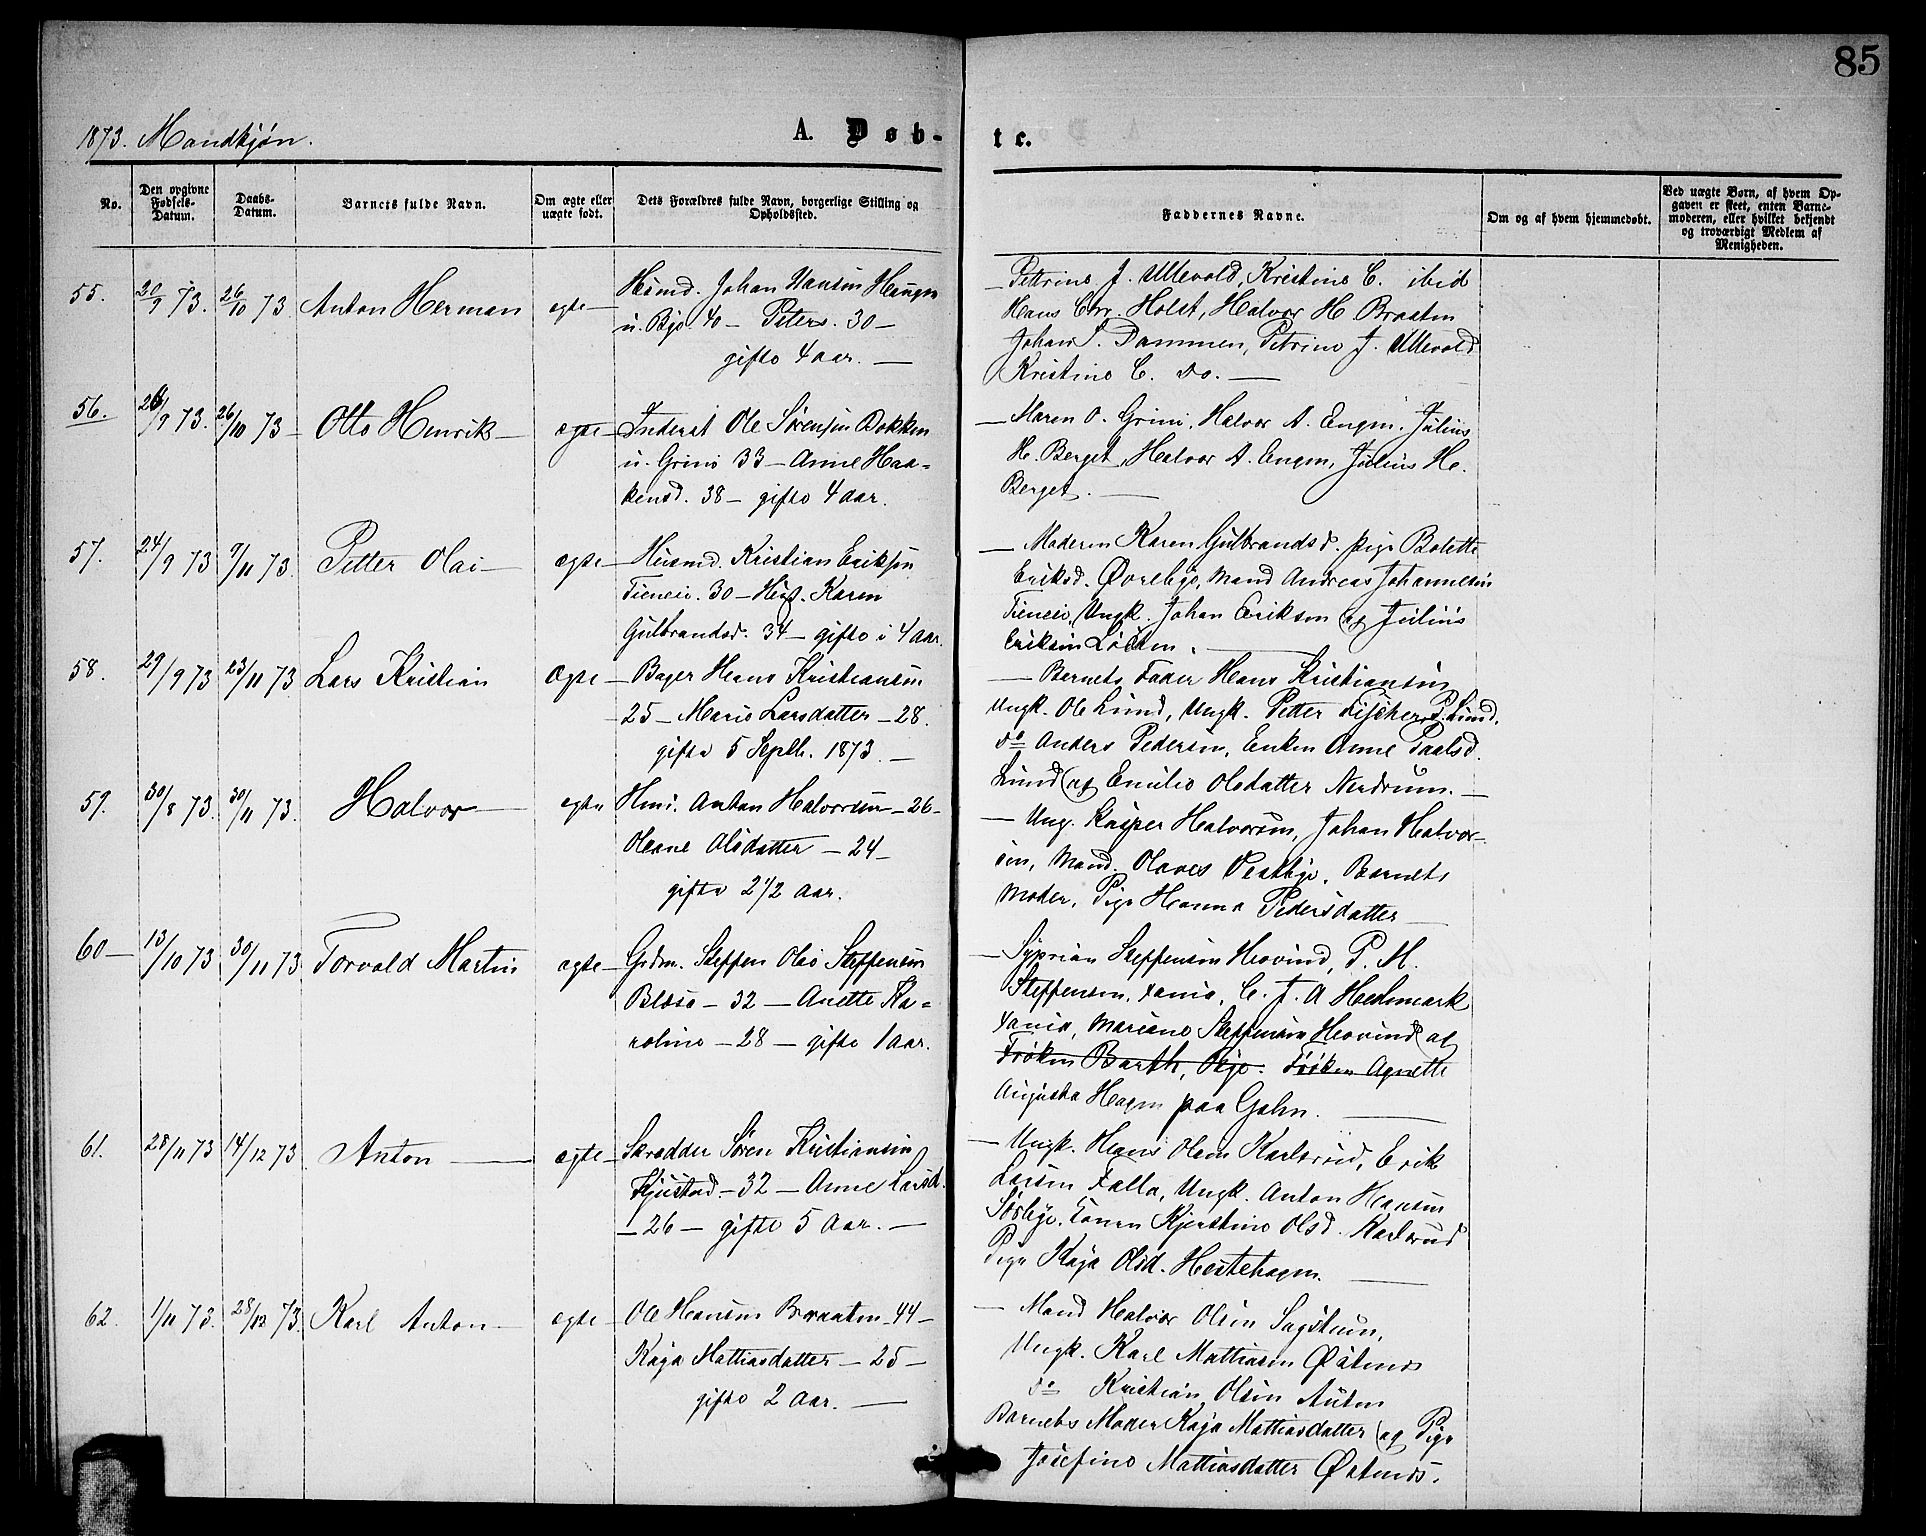 85
1873. Mandkjøn.
A. Døb-
te.
No.
Den opgivne Fødsels-Datum.
Daabs-Datum.
Barnets fulde Navn.
Om ægte eller uægte født.
Dets Forældres fulde Navn, borgerlige Stilling og Opholdssted.
Faddernes Navne.
Om og af hvem hjemmedøbt.
Ved uægte Børn, af hvem Opgaven er skeet, enten Barnemoderen, eller hvilket bekjendt og troværdigt Medlem af Menigheden.
55. 20/9 73. 26/10 73 Anton Herman ægte — Husmd. Johan Hansen Haugen
u. Bjo 40 — Peters. 30 —
gifte 4 aar. —
— Petrine J. Ullevold, Kristine C. ibid
Hans Chr. Holst, Halvor H Braaten
Johan S. Dammen, Petrine J. Ullevold
Kristine C. do. —
56. 26/9 73. 26/10 73 — Otto Henrik — ægte — Inderst Ole Sørensen Bakken
u. Grini 33 — Anne Haa-
kensd. 38 — gifte 4 aar.
— Maren O. Grini, Halvor A. Engen, Julius
H. Berget, Halvor A. Engen, Julius H.
Berget. —
57. 24/9 73 9/11 73. Petter Olai — ægte — Husmd. Kristian Eriksen
30 — Hust. Karen
Gulbrandsd. 34 — gifte i 4 aar.
— Moderen Karen Gulbrandsd. pige Bolette
Eriksd. Øvrebye, Mand Andreas Johannesen
Ungk. Johan Eriksen og Julius
Eriksen Løkken. —
58. 29/9 73 23/11 73 Lars Kristian Ægte — Bager Hans Kristiansen
25 — Marie Larsdatter — 28.
gifte 5 Septb. 1873. —
— Barnets Fader Hans Kristiansen
Ungk. Ole Lund, Ungk. Petter Fischer P. Lund,
do Anders Pedersen, Enken Anne Paalsd.
Lund og Emilie Olsdatter Nerdrum. —
59. 30/8 73. 30/11 73. Halvor — ægte Hmd. Anton Halvorsen — 26 —
Oleane Olsdatter — 24 —
gifte 2 1/2 aar.
— Ung. Kasper Halvorsen, Johan Halvor-
sen, Mand. Olaves Vestbye, Barnets
Moder, Pige Hanna Pedersdatter —
60 — 13/10 73 30/11 73 Torvald Martin ægte — Grdm. Steffen Olai Steffensen
32 — Anette Ka-
roline — 28 — gifte 1 aar.
— Syprian Steffensen Hovind, P. M.
Steffensen, C. J. A Hedemark
Mariane Steffensen Hovind og
Frøken Barth, Frøken Agnette
Augusta Hagen paa Galm. —
61. 28/11 73 14/12 73 Anton — ægte — Skrædder Søren Kristiansen
Kjustad — 32 — Anne Larsd.
— 26 — gifte 5 aar. —
— Ungk. Hans Olsen Karlsrud, Erik
Larsen Falla, Ungk. Anton Hansen
Sørbye, Konen Kjerstine Olsd. Karlsrud
Pige Kaja Olsd. Hestehagen. —
62. 1/11 73. 28/12 73. Karl Anton — ægte — Ole Hansen Braaten — 44 —
Kaja Mattiasdatter — 25 —
gifte 2 aar. —
— Mand Halvor Olsen Sagstuen,
Ungk. Karl Mattiasen Østenes
do Kristian Olsen
Barnets Moder Kaja Mattiasdatter og Pige
Josefine Mattiasdatter Østenes.